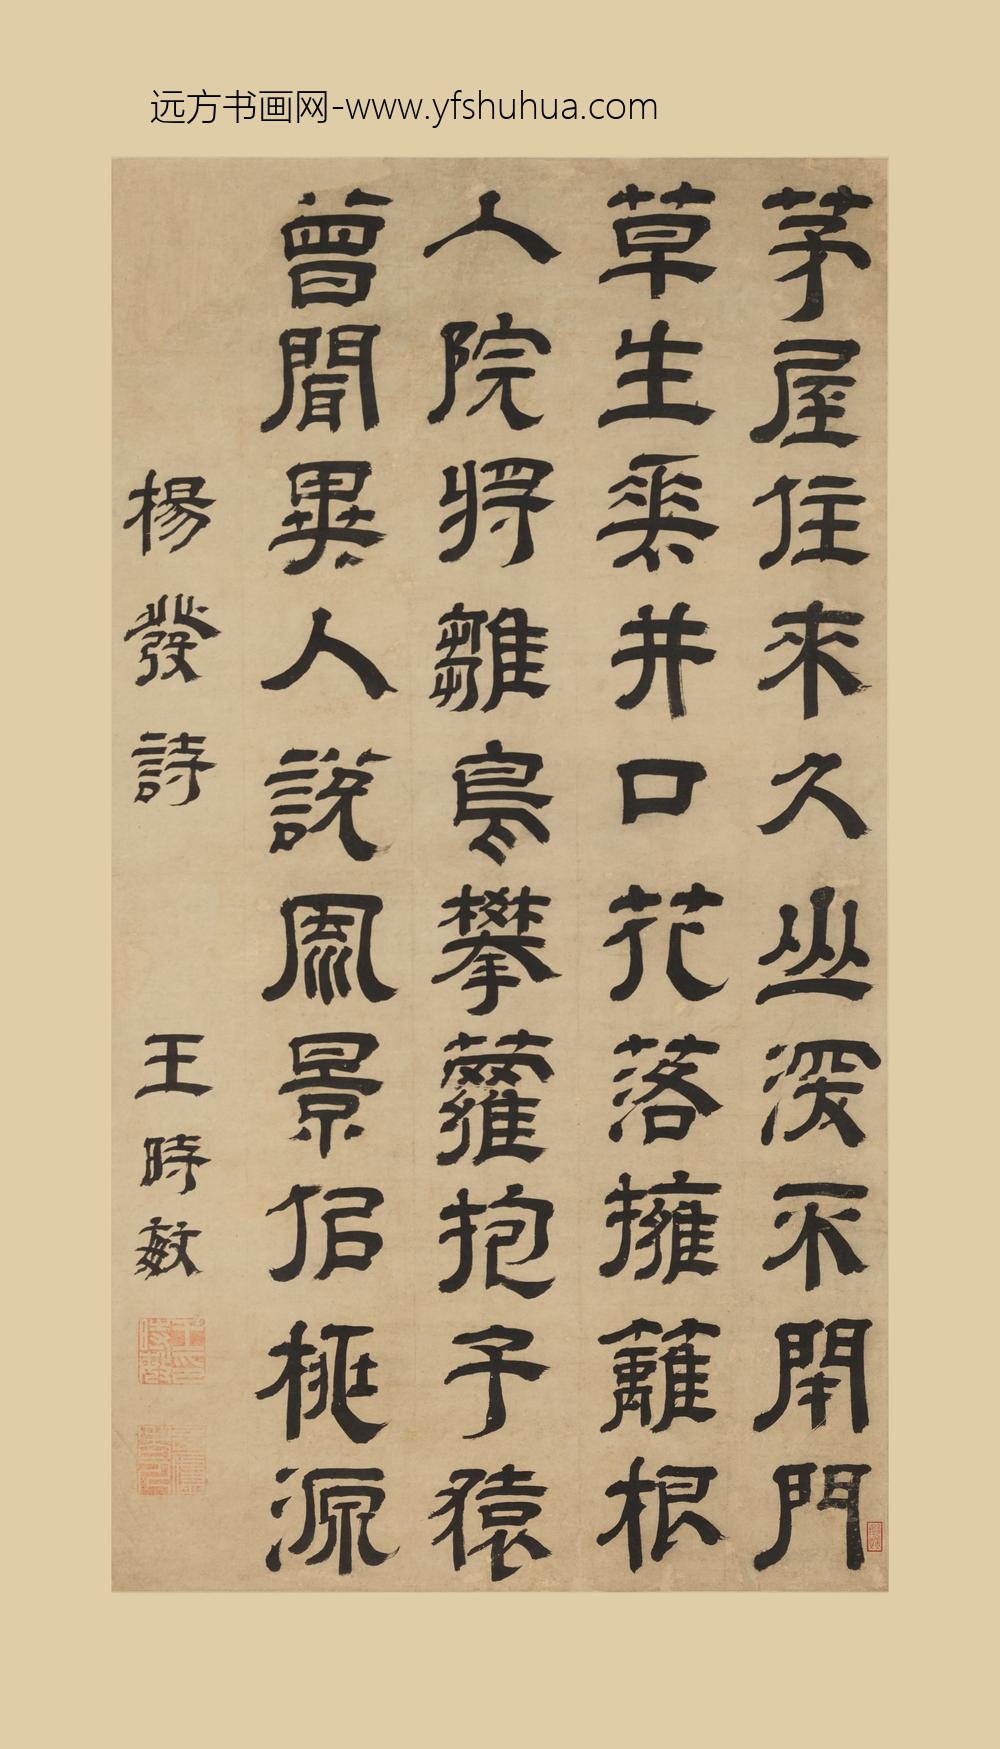 远方书画网-www.yfshuhua.com
茅屋住來久山深不閉門
草生垂井口花落擁籬根
入院將雛鳥攀蘿抱子猿
曾聞異人說風景侣桃源
楊發詩
王時敏